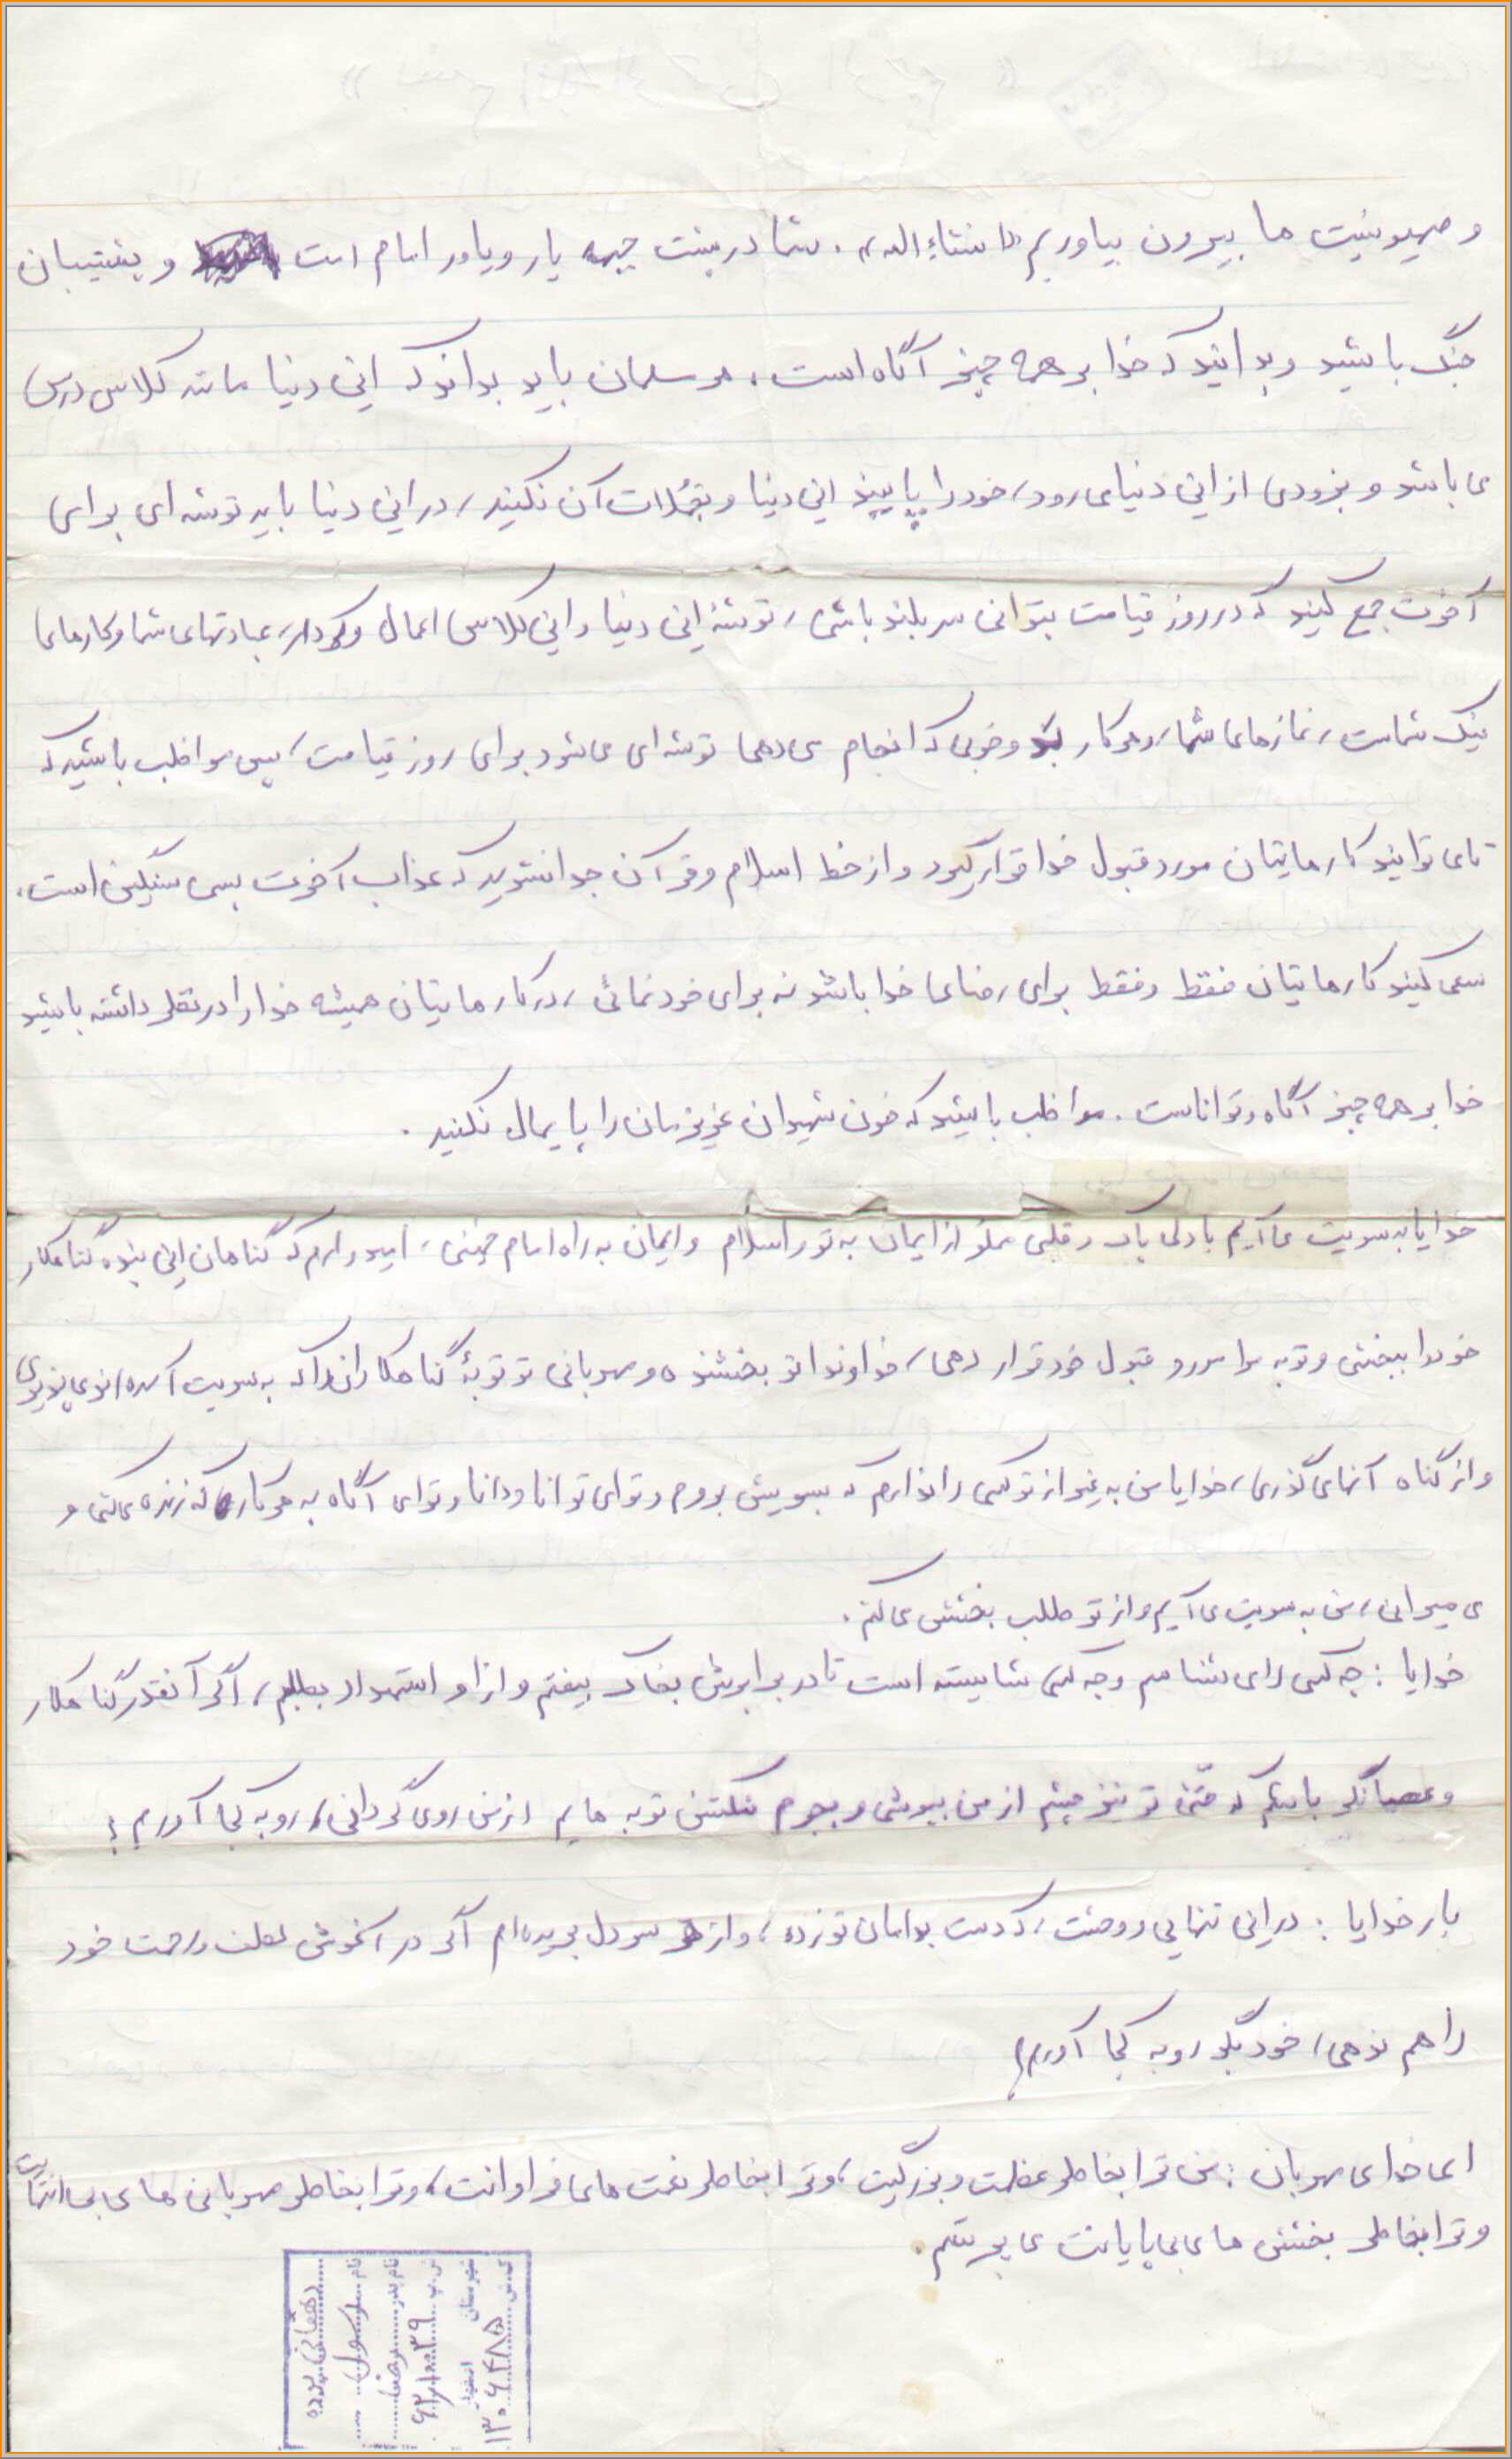 و صهیونیست ها بیرون بیاوریم «انشاءالله». شما در پشت جبهه یار و یاور امام امت و پشتیبان
جنگ باشید و بدانید که خدا بر همه چیز آگاه است. هر مسلمان باید بداند که این دنیا مانند کلاس درس
می باشد و بزودی از این دنیا می رود، خود را پایبند این دنیا و تجملات آن نکنید، در این دنیا باید توشه ای برای
آخرت جمع کنید که در روز قیامت بتوانی سربلند باشی، توشهٔ این دنیا و این کلاس اعمال و کردار، عبادتهای شما و کارهای
نیک شماست، نمازهای شما، و هر کار و خوبی که انجام می دهی توشه ای می شود برای روز قیامت، پس مواظب باشید که
تا می توانید کارهایتان مورد قبول خدا قرار گیرد و از خط اسلام و قرآن جدا نشوید که عذاب آخرت بسی سنگین است،
سعی کنید کارهایتان فقط و فقط برای رضای خدا باشد نه برای خودنمائی، در کارهایتان همیشه خدا را در نظر داشته باشید
خدا بر همه چیز آگاه و تواناست. مواظب باشید که خون شهیدان عزیزمان را پایمال نکنید.
خدایا به سویت می آیم با دلی پاک و قلبی مملو از ایمان به تو و اسلام و ایمان به راه امام خمینی، امیدوارم که گناهان این بنده گناهکار
خود را ببخشی و توبه مرا مورد قبول خود قرار دهی، خداوندا تو بخشنده و مهربانی تو توبهٔ گناهکاران را که به سویت آمده اند می پذیری
و از گناه آنها می گذری، خدایا من به غیر از تو کسی را ندارم که بسویش بروم و تو ای توانا و دانا و تو ای آگاه به هر کار که زنده می کنی و
می میرانی، من به سویت می آیم و از تو طلب بخشش می کنم.
خدایا: چه کسی را می شناسم و چه کسی شایسته است تا در برابرش بخاک بیفتم و از او استمداد بطلبم، اگر آنقدر گناهکار
و عصیانگر باشم که حتی تو نیز چشم از من بپوشی و بجرم شکستن توبه هایم از من روی گردانی، رو به کجا آورم؟
بار خدایا: در این تنهایی و وحشت، که دست بدامان تو زده، و از هر سو دل بریده ام اگر در آغوش لطف و رحمت خود
راهم ندهی، خود بگو رو به کجا آورم؟
ای خدای مهربان: من ترا بخاطر عظمت و بزرگیت، و ترا بخاطر نعمت های فراوانت، و ترا بخاطر مهربانی های بی انتهایت
و ترا بخاطر بخشش های بی پایانت می پرستم.
نام رسول
نام پدر رضا
شهرستان اصفهان
۱۳۰۶۴۸۵